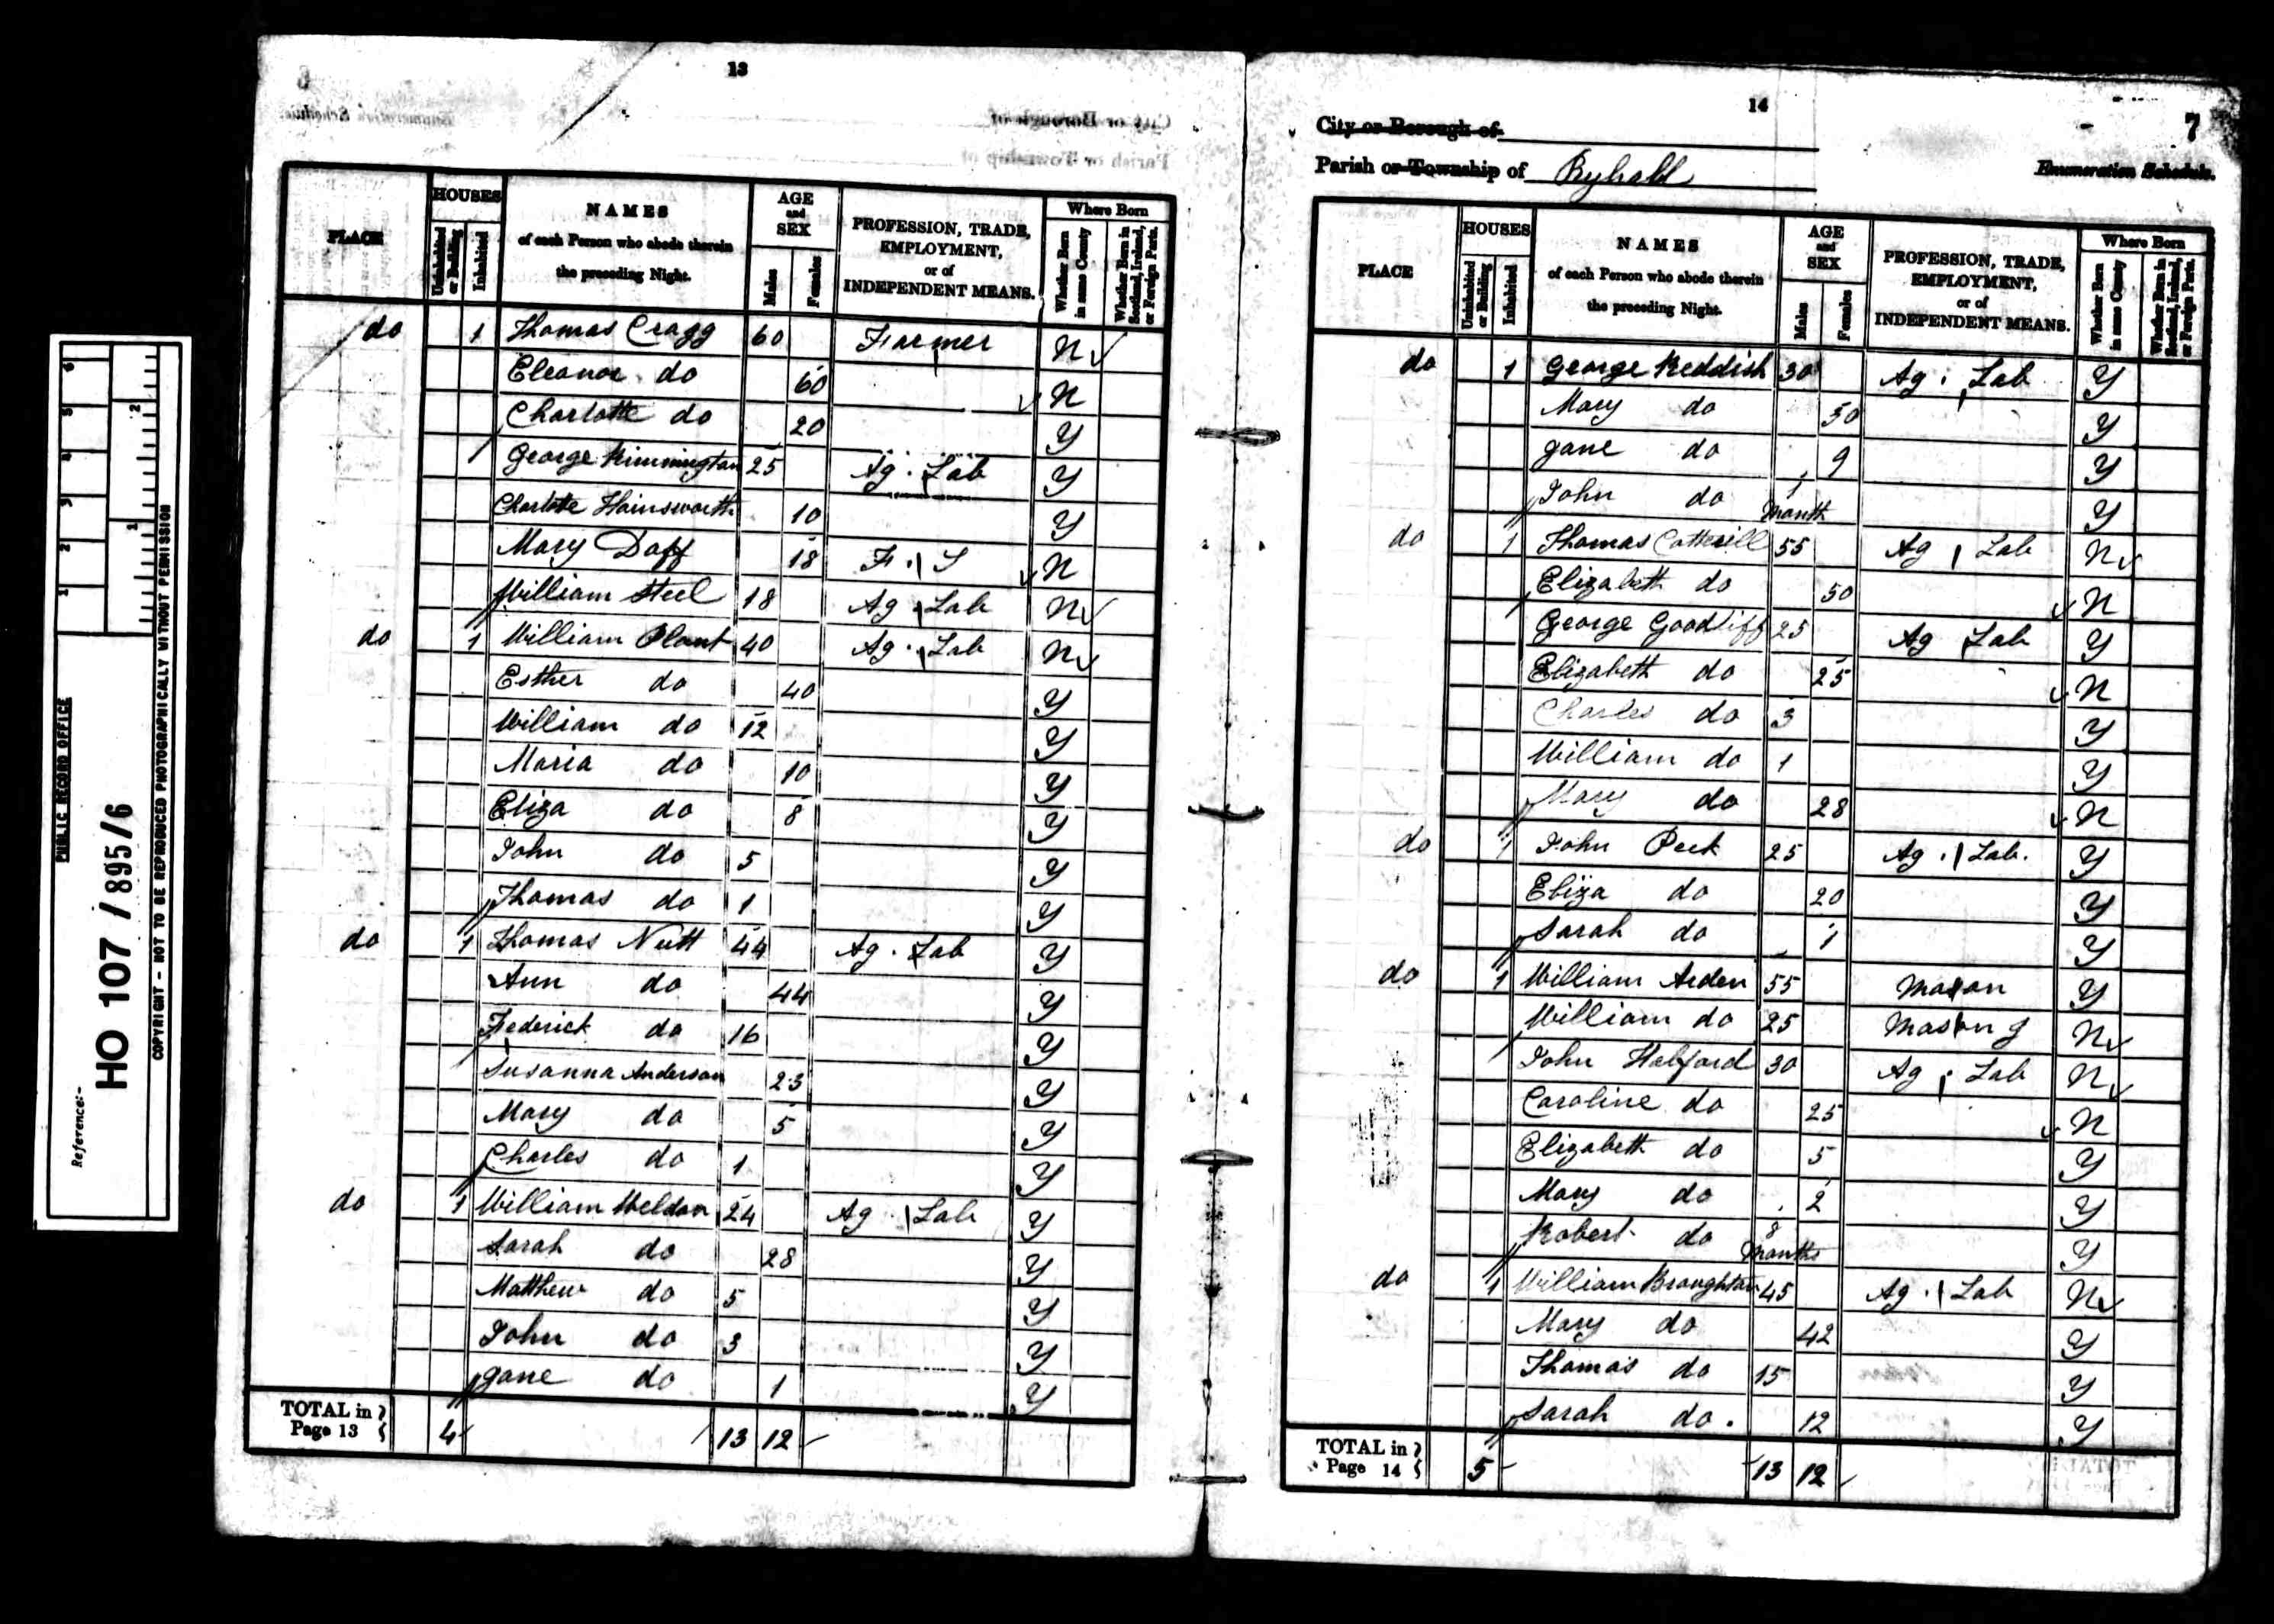 PUBLIC RECORD OFFICE
Reference:-
HO 107 / 895/6
COPYRIGHT - NOT TO BE REPRODUCED PHOTOGRAPHICALLY WITHOUT PERMISSION
1 2 3 4 5 6
1 2
13
PLACE
HOUSES
Uninhabited or Building
Inhabited
NAMES
of each Person who abode therein
the preceding Night.
AGE and SEX
Males
Females
PROFESSION, TRADE,
EMPLOYMENT,
or of
INDEPENDENT MEANS.
Where Born
Whether Born in same County
Whether Born in Scotland, Ireland, or Foreign Parts.
do 1 Thomas Cragg 60 Farmer N
Eleanor do 60 N
Charlotte do 20 Y
George Rimmington 25 Ag. Lab Y
Charlotte Hainsworth 10 Y
Mary Daff 18 F. S N
William Steel 18 Ag Lab N
do 1 William Plant 40 Ag. Lab N
Esther do 40 Y
William do 12 Y
Maria do 10 Y
Eliza do 8 Y
John do 5 Y
Thomas do 1 Y
do 1 Thomas Nutt 44 Ag. Lab Y
Ann do 44 Y
Frederick do 16 Y
Susanna Anderson 23 Y
Mary do 5 Y
Charles do 1 Y
do 1 William Weldon 24 Ag Lab Y
Sarah do 28 Y
Matthew do 5 Y
John do 3 Y
Jane do 1 Y
TOTAL in Page 13 4 13 12
14
7
City or Borough of
Parish or Township of Ryhall
Enumeration Schedule.
PLACE
HOUSES
Uninhabited or Building
Inhabited
NAMES
of each Person who abode therein
the preceding Night.
AGE and SEX
Males
Females
PROFESSION, TRADE,
EMPLOYMENT,
or of
INDEPENDENT MEANS.
Where Born
Whether Born in same County
Whether Born in Scotland, Ireland, or Foreign Parts.
do 1 George Reddish 30 Ag. Lab Y
Mary do 30 Y
Jane do 9 Y
John do 1 Month Y
do 1 Thomas Cotterill 55 Ag Lab N
Elizabeth do 50 N
George Goodliff 25 Ag Lab Y
Elizabeth do 25 N
Charles do 3 Y
William do 1 Y
Mary do 28 N
do 1 John Peek 25 Ag. Lab. Y
Eliza do 20 Y
Sarah do 1 Y
do 1 William Arden 55 Mason Y
William do 25 Mason J N
John Halford 30 Ag. Lab N
Caroline do 25 N
Elizabeth do 5 Y
Mary do 2 Y
Robert do 8 Months Y
do 1 William Broughton 45 Ag. Lab N
Mary do 42 Y
Thomas do 15 Y
Sarah do. 12 Y
TOTAL in Page 14 5 13 12